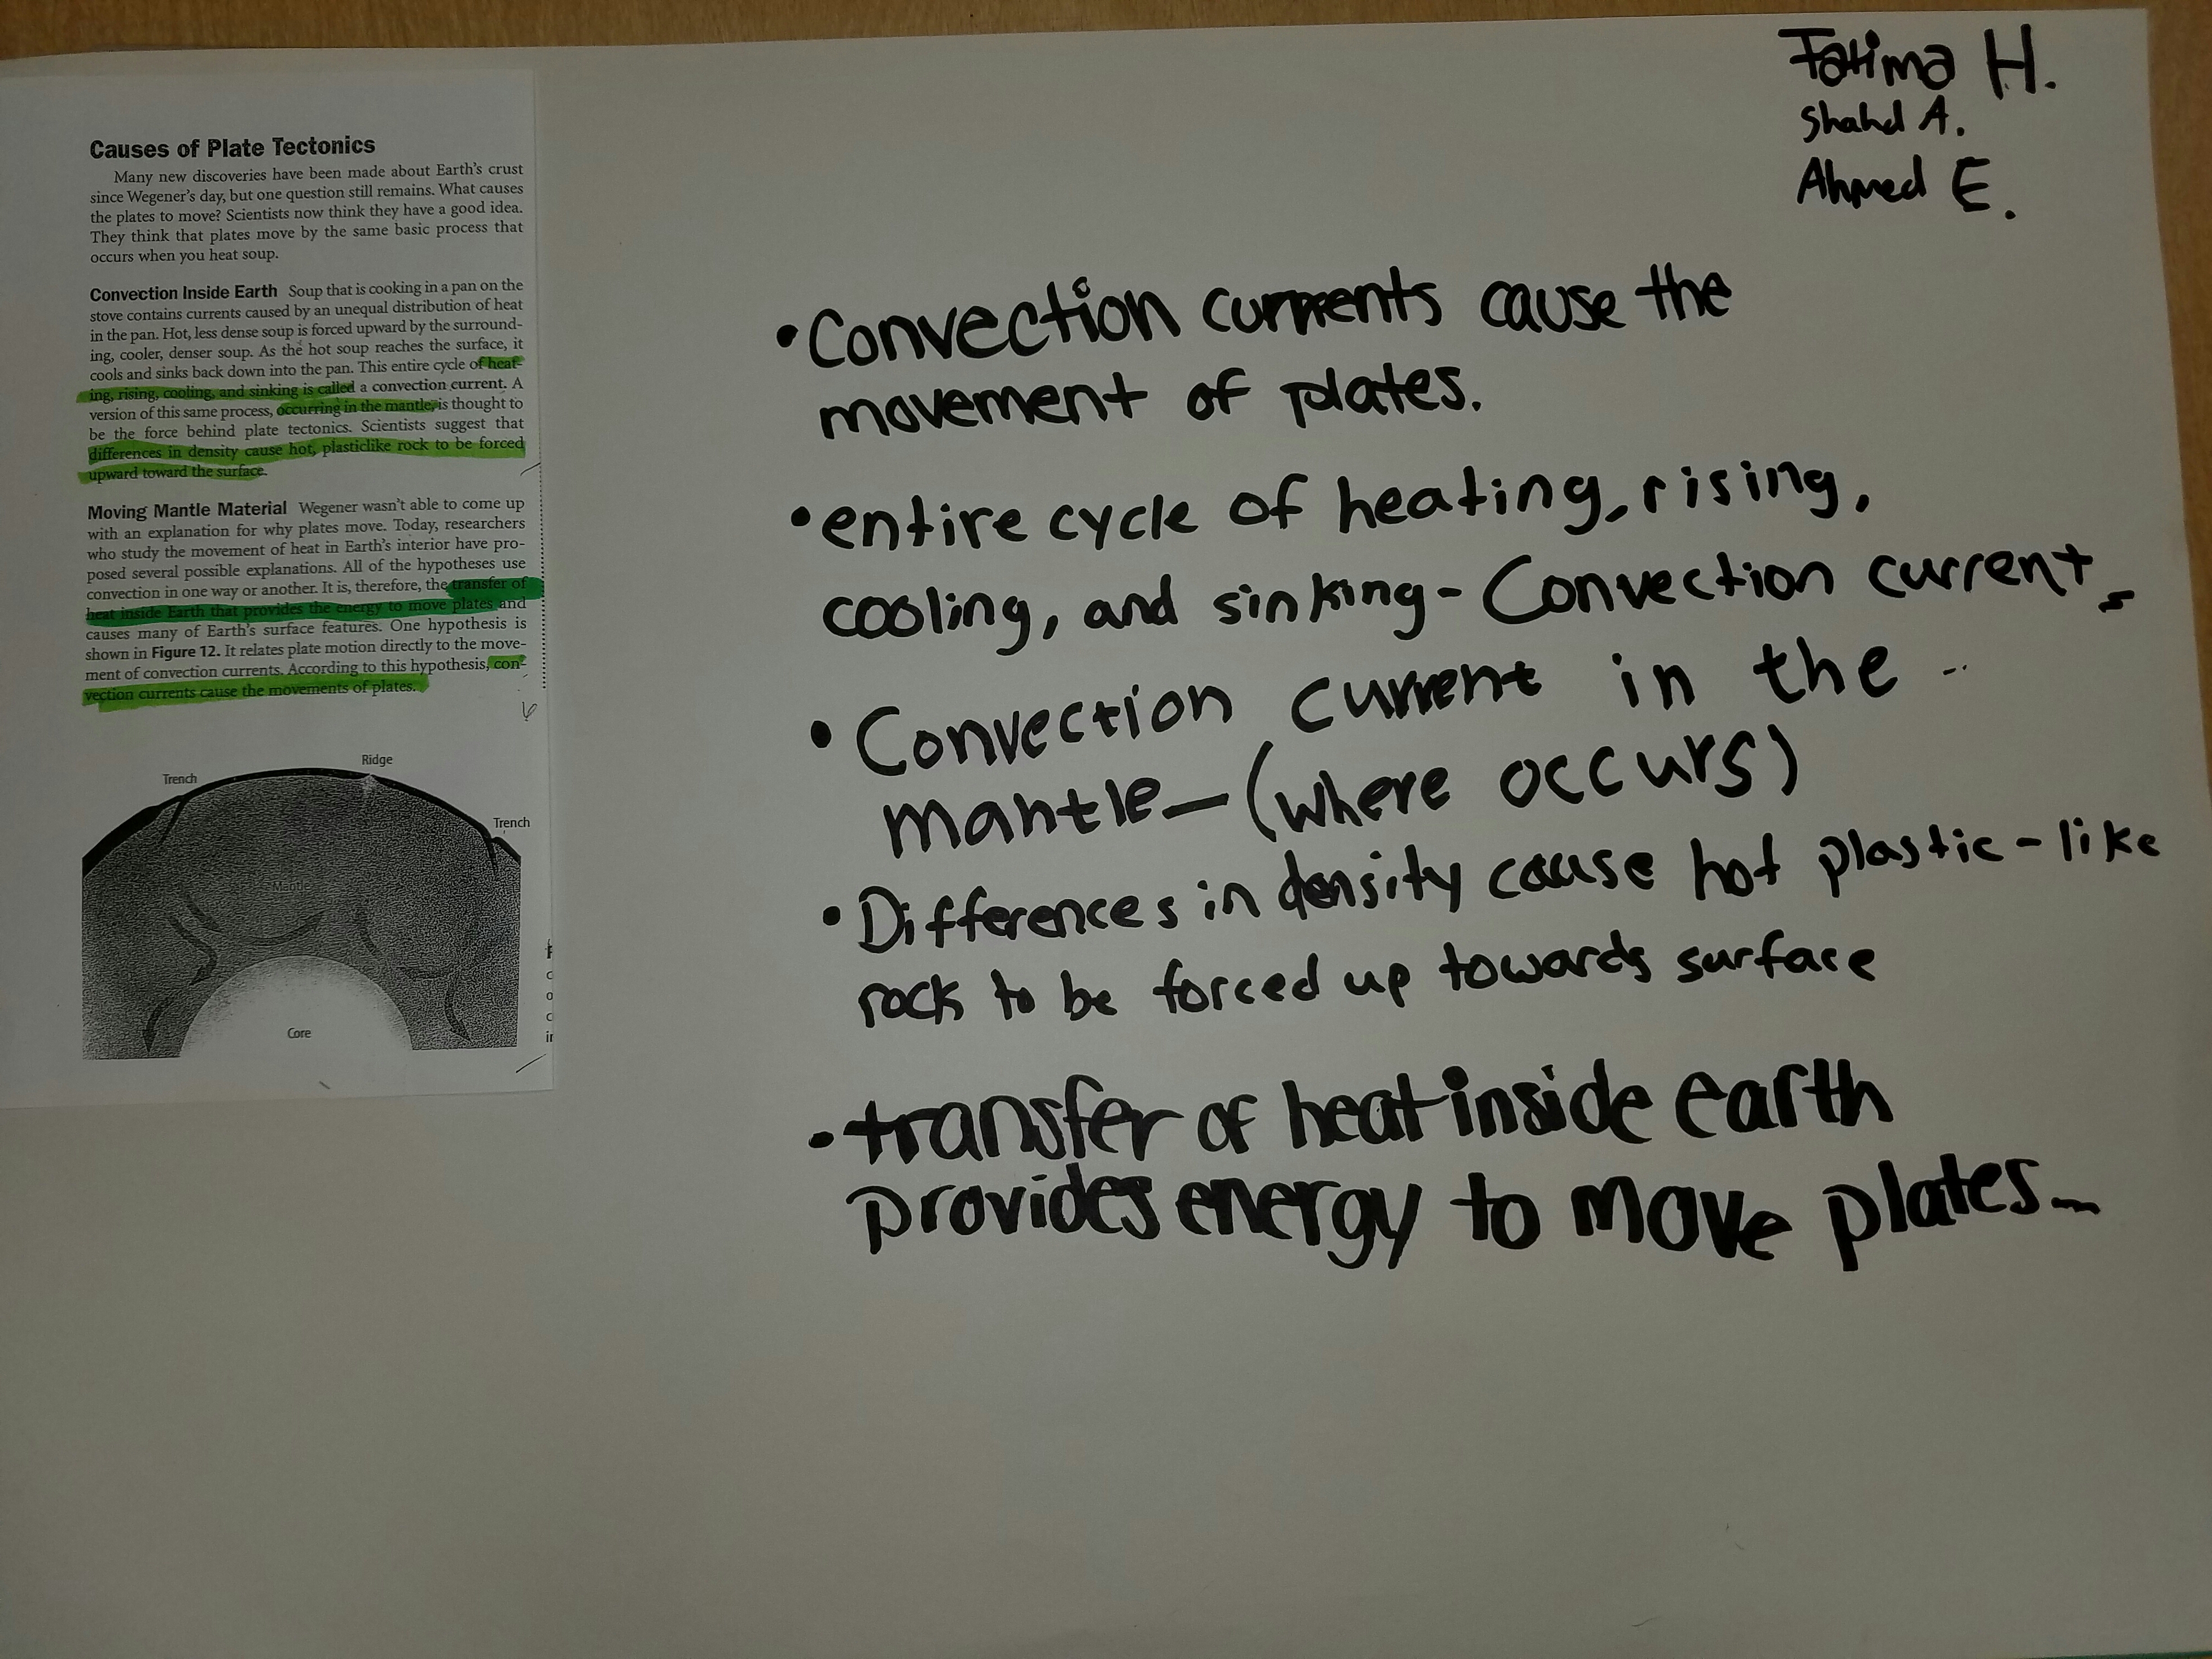 Causes of Plate Tectonics
Many new discoveries have been made about Earth's crust
since Wegener's day, but one question still remains. What causes
the plates to move? Scientists now think they have a good idea.
They think that plates move by the same basic process that
occurs when you heat soup.
Convection Inside Earth Soup that is cooking in a pan on the
stove contains currents caused by an unequal distribution of heat
in the pan. Hot, less dense soup is forced upward by the surround-
ing, cooler, denser soup. As the hot soup reaches the surface, it
cools and sinks back down into the pan. This entire cycle of heat-
ing, rising, cooling, and sinking is called a convection current. A
version of this same process, occurring in the mantle, is thought to
be the force behind plate tectonics. Scientists suggest that
differences in density cause hot, plasticlike rock to be forced
upward toward the surface.
Moving Mantle Material Wegener wasn't able to come up
with an explanation for why plates move. Today, researchers
who study the movement of heat in Earth's interior have pro-
posed several possible explanations. All of the hypotheses use
convection in one way or another. It is, therefore, the transfer of
heat inside Earth that provides the energy to move plates and
causes many of Earth's surface features. One hypothesis is
shown in Figure 12. It relates plate motion directly to the move-
ment of convection currents. According to this hypothesis, con-
vection currents cause the movements of plates.
Ridge
Trench
Trench
Mantle
Core
Fatima H.
Shahd A.
Ahmed E.
• Convection currents cause the
movement of plates.
• entire cycle of heating, rising,
cooling, and sinking - Convection currents
• Convection current in the
mantle - (where occurs)
• Differences in density cause hot plastic-like
rock to be forced up towards surface
• transfer of heat inside earth
provides energy to move plates...